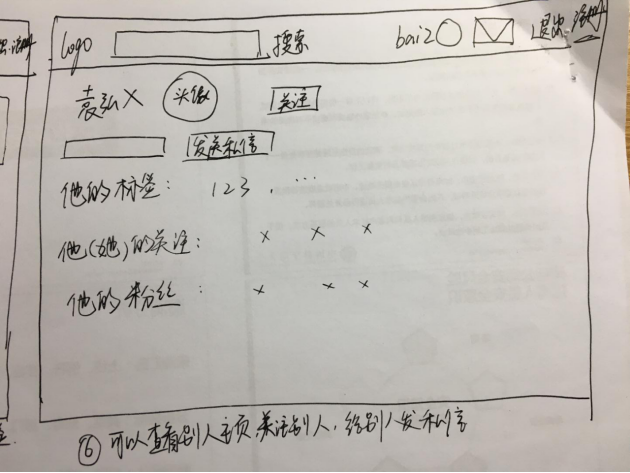 logo 搜索 bai2 退出 注册
袁弘X 头像 关注
发送私信
他的标签: 123. ...
他(她)的关注: x x x
他的粉丝: x x x
⑥可以查看别人主页,关注别人,给别人发私信